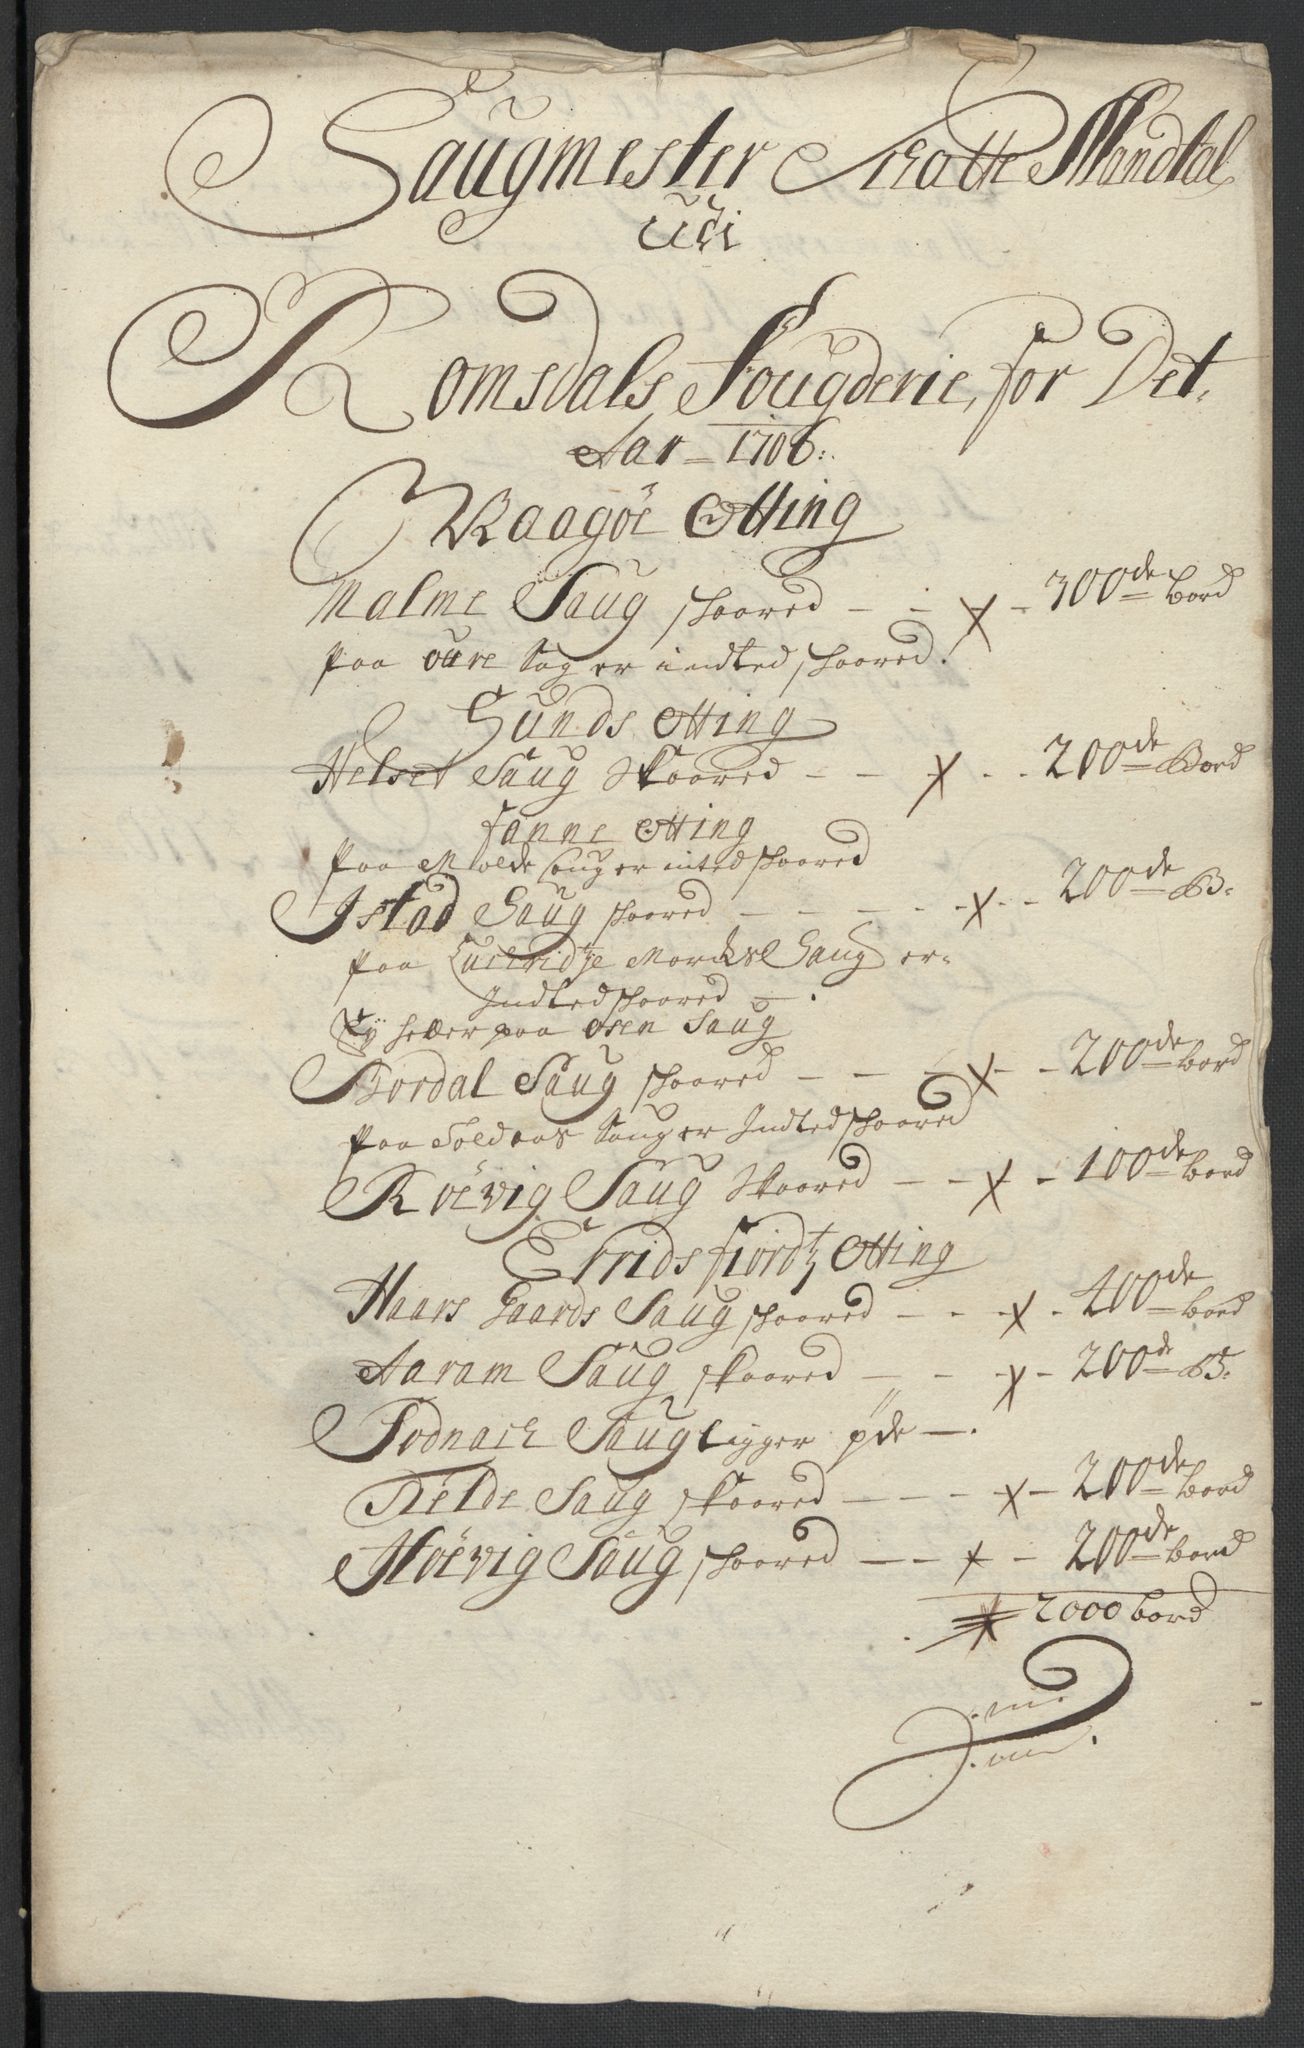 Saugmester Skatte Mandtal
Udi
Romsdals Fougderie, for Det
Aar 1706:
Waagöe Otting
Malme Saug skaared - - x - 300de bord
Paa oure Sag er indted skaared.
Sunds Otting
Helset Saug Skaared - - x - - 200de Bord
Fanne Otting
Paa Molde Saug er inted skaared
Istad Saug skaared - - - - x - - 200de B:
Paa Morchre Saug er
Indted skaared - .
Ey heller paa osen Saug
Bordal Saug skaared - - - x - - 200de bord
Paa Saug er Indted skaared
Röevig Saug Skaared - - x - 100de bord
Erridsfiordtz Otting
Haars Gaards Saug skaared - - x - 400de bord
Aaram Saug skaared - - x - 200de B:
Fodnach Saug Ligger øde - .
Tielde Saug skaared - - - x - 200de bord
Höevig Saug skaared - - x - 200de bord
2000 bord